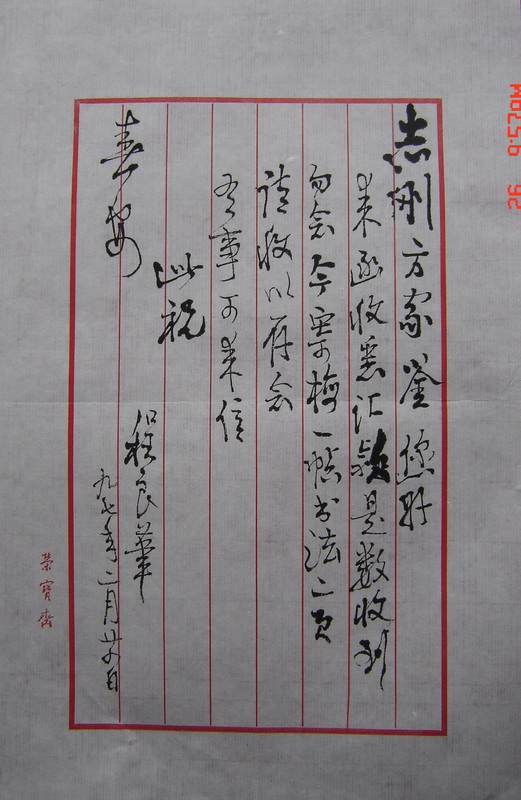 志刚方家鉴
来函收悉汇款是数收到
勿念今寄梅一帧书法二页
请收以存念
有事可来信
此祝
春安
程良
九七年二月廿六日
荣宝斋